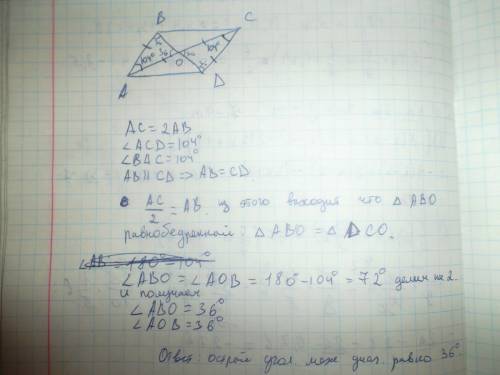 B
C
104° 36° O 104°
A
D
AC = 2AB
∠ACD = 104°
∠BAC = 104°
AB || CD => AB = CD
AC/2 = AB. из этого выходит что △ ABO
равнобедренный. △ ABO = △ DCO.
= 180° - 104°
∠ABO = ∠AOB = 180° - 104° = 72° делим на 2.
и получаем
∠ABO = 36°
∠AOB = 36°
Ответ: острый угол. межд диаг. равно 36°.